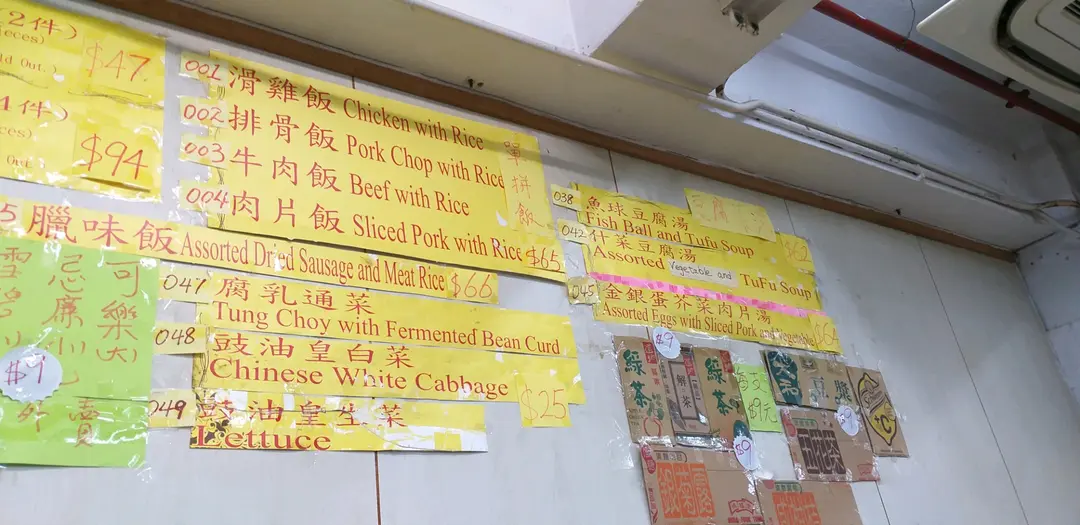 (2件)
$47
ld Out.)
4件)
$94
001 滑雞飯 Chicken with Rice
002 排骨飯 Pork Chop with Rice
003 牛肉飯 Beef with Rice
004 肉片飯 Sliced Pork with Rice
單拼飯
$65
5 臘味飯 Assorted Dried Sausage and Meat Rice $66
047 腐乳通菜
Tung Choy with Fermented Bean Curd
048 豉油皇白菜
Chinese White Cabbage
$25
049 豉油皇生菜
Lettuce
可樂(大)
忌廉(小)
$9
外賣
038 魚球豆腐湯
Fish Ball and Tufu Soup
042 什菜豆腐湯
Assorted Vegetable and TuFu Soup
045 金銀蛋芥菜肉片湯
Assorted Eggs with Sliced Pork and Vegetable
$9
綠茶
綠茶
$9元
五花茶